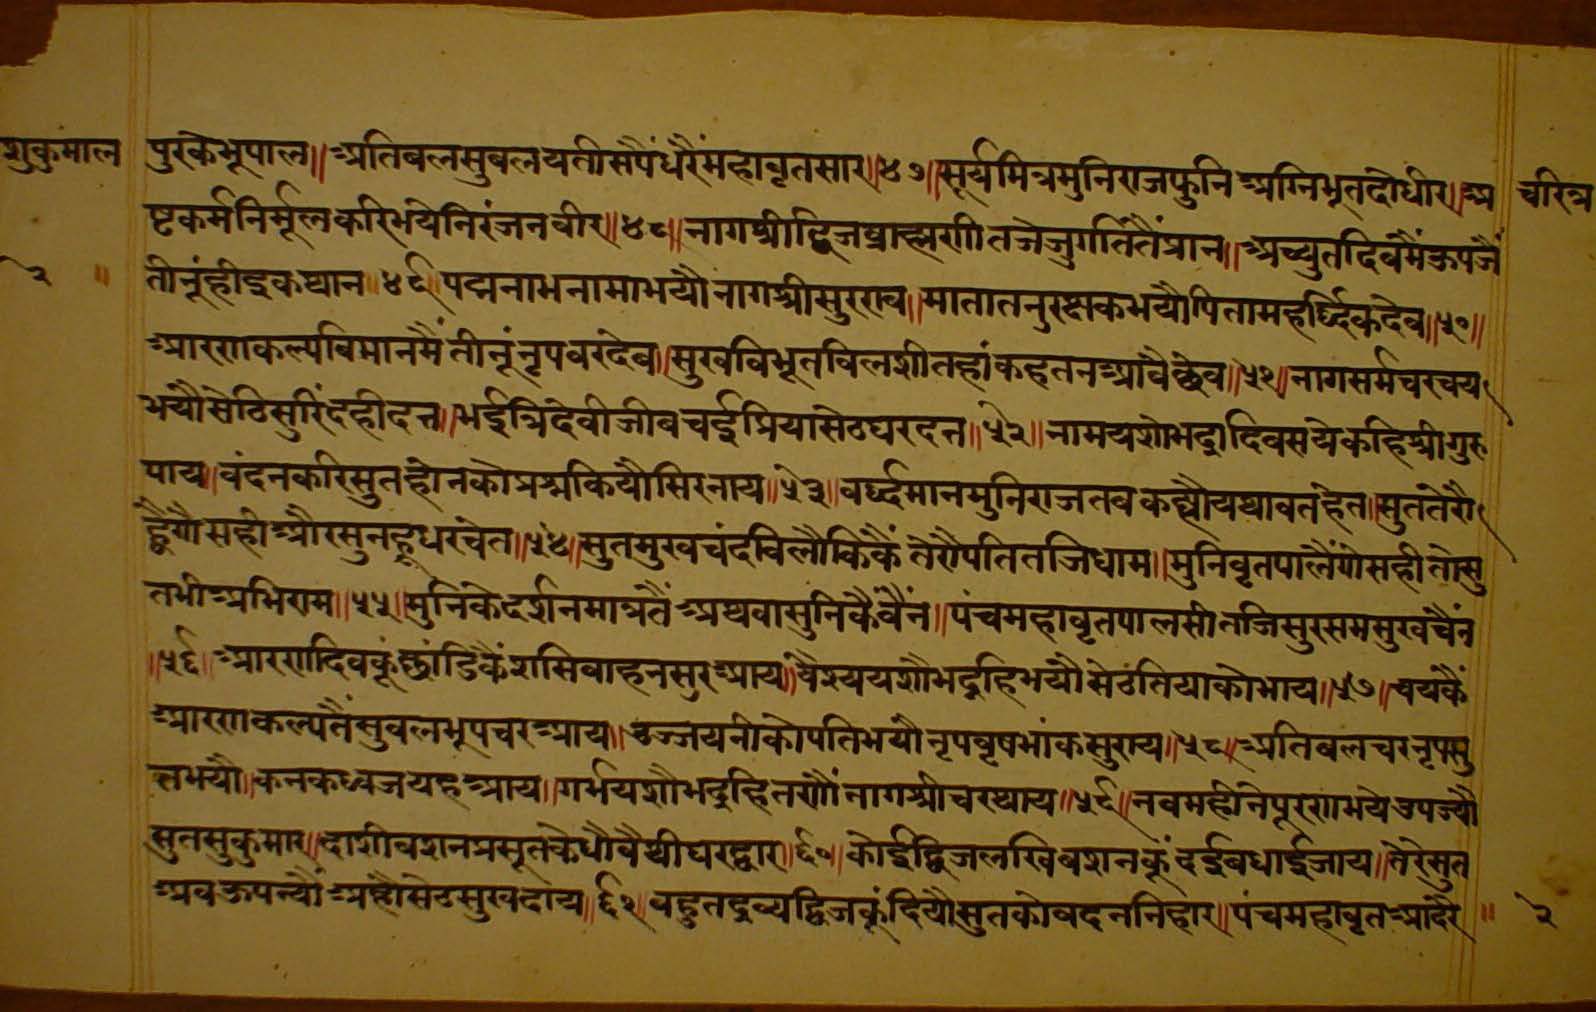 शुकुमाल
चरित्र
पुरकेभूपाल॥अतिबलसुबलयतीसपैंधरैंमहावृतसार॥४७॥सूर्यमित्रमुनिराजफुनिअग्निभूतदोधीर॥अ
ष्टकर्मनिर्मूलकरिभयेनिरंजनवीर॥४८॥नागश्रीद्विजब्राह्मणीतजेजुगतितैंप्रान॥अच्युतदिवमैंऊपजैं
तीनूंहीइकथान॥४९॥पद्मनाभनामाभयौनागश्रीसुरराव॥मातातनुरक्षकभयौपितामहर्द्धिकदेव॥५०॥
आरणकल्पविमानमैंतीनूंनृपवरदेव॥सुखविभूतविलशीतहांकहतनआवैछेव॥५१॥नागसर्मचरचय
भयौसेठिसुरिंदहीदत्त॥भईत्रिदेवीजीवचईप्रियासेठघरदत्त॥५२॥नामयशोभद्रादिवसयेकहिश्रीगुरु
पाय॥वंदनकरिसुतहोनकोप्रश्नकियौसिरनाय॥५३॥वर्द्धमानमुनिराजतवकह्यौयथावतहेत॥सुततेरौ
ह्वैगौसहीऔरसुनहूधरचेत॥५४॥सुतमुखचंदविलौकिकैंतेरौपतितजिधाम॥मुनिवृतपालैंगोसहीतोसु
तभीअभिराम॥५५॥मुनिकेदर्शनमात्रतैंअथवासुनिकैंवैंन॥पंचमहावृतपालसीतजिसुरसमसुखचैंन
॥५६॥आरणदिवकूंछांडिकैंशसिवाहनसुरआय॥वैश्ययशौभद्रहिभयौसेठंतियाकोभाय॥५७॥चयकैं
आरणकल्पतैंसुवलभूपचरआय॥उज्जयनीकोपतिभयौनृपवृषभांकसुराय॥५८॥अतिबलचरनृपसु
तभयौ॥कनकध्वजयहआय॥गर्भयशौभद्रहितणौंनागश्रीचरथाय॥५९॥नवमहीनेपूरणभयेउपज्यौ
सुतसुकुमार॥दाशीवशनप्रसूतकेधौवैथीघरद्वार॥६०॥कोईद्विजलखिवशनकूंदईबधाईजाय॥तेरेसुत
अवऊपन्यौंअहौसेठसुखदाय॥६१॥वहुतद्रव्यद्विजकूंदियौसुतकोवदननिहार॥पंचमहावृतआदरै
२
२